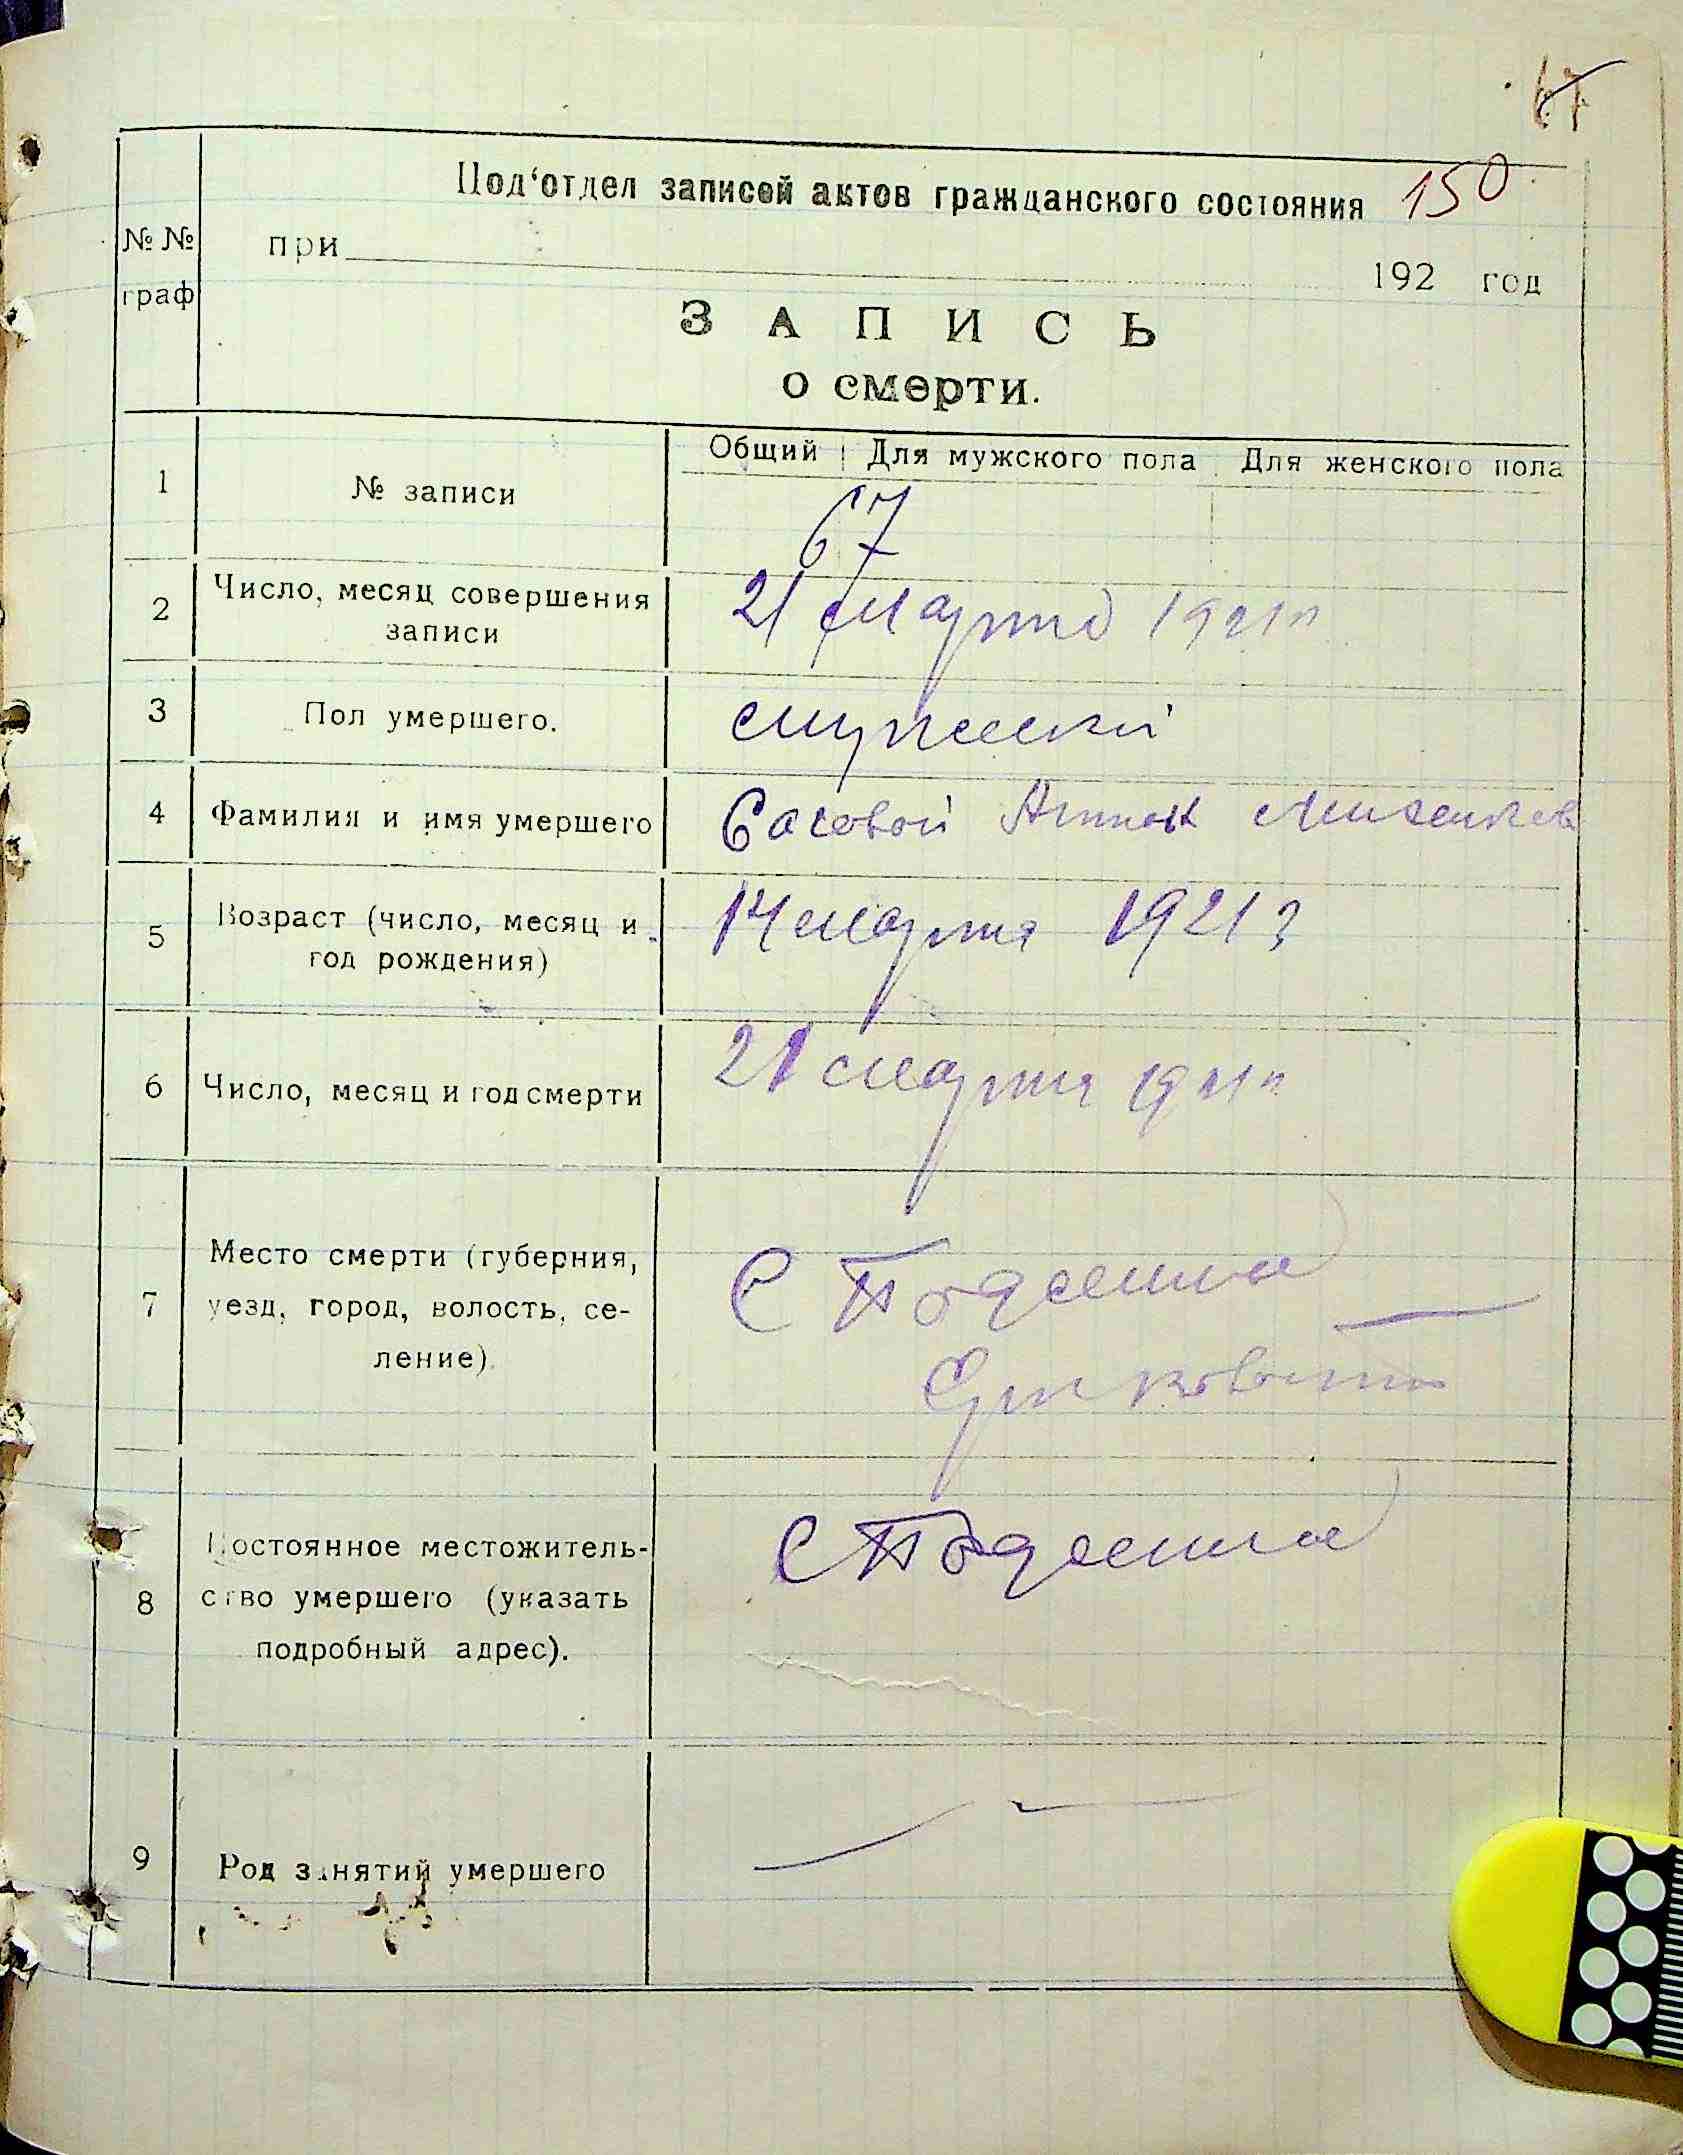 67
Под‘отдел записей актов гражданского состояния 150
№ №
граф
при 192 год
ЗАПИСЬ
о смерти.
Общий Для мужского пола Для женского пола
1 № записи 67
2 Число, месяц совершения
записи
21 Марта 1921г
3 Пол умершего. мужской
4 Фамилия и имя умершего Сасовой Антон
5 Возраст (число, месяц и
год рождения)
14 марта 1921 г
6 Число, месяц и год смерти 21 марта 1921г
7 Место смерти (губерния,
уезд, город, волость, се-
ление).
С
8 Постоянное местожитель-
ство умершего (указать
подробный адрес).
С
9 Род занятий умершего